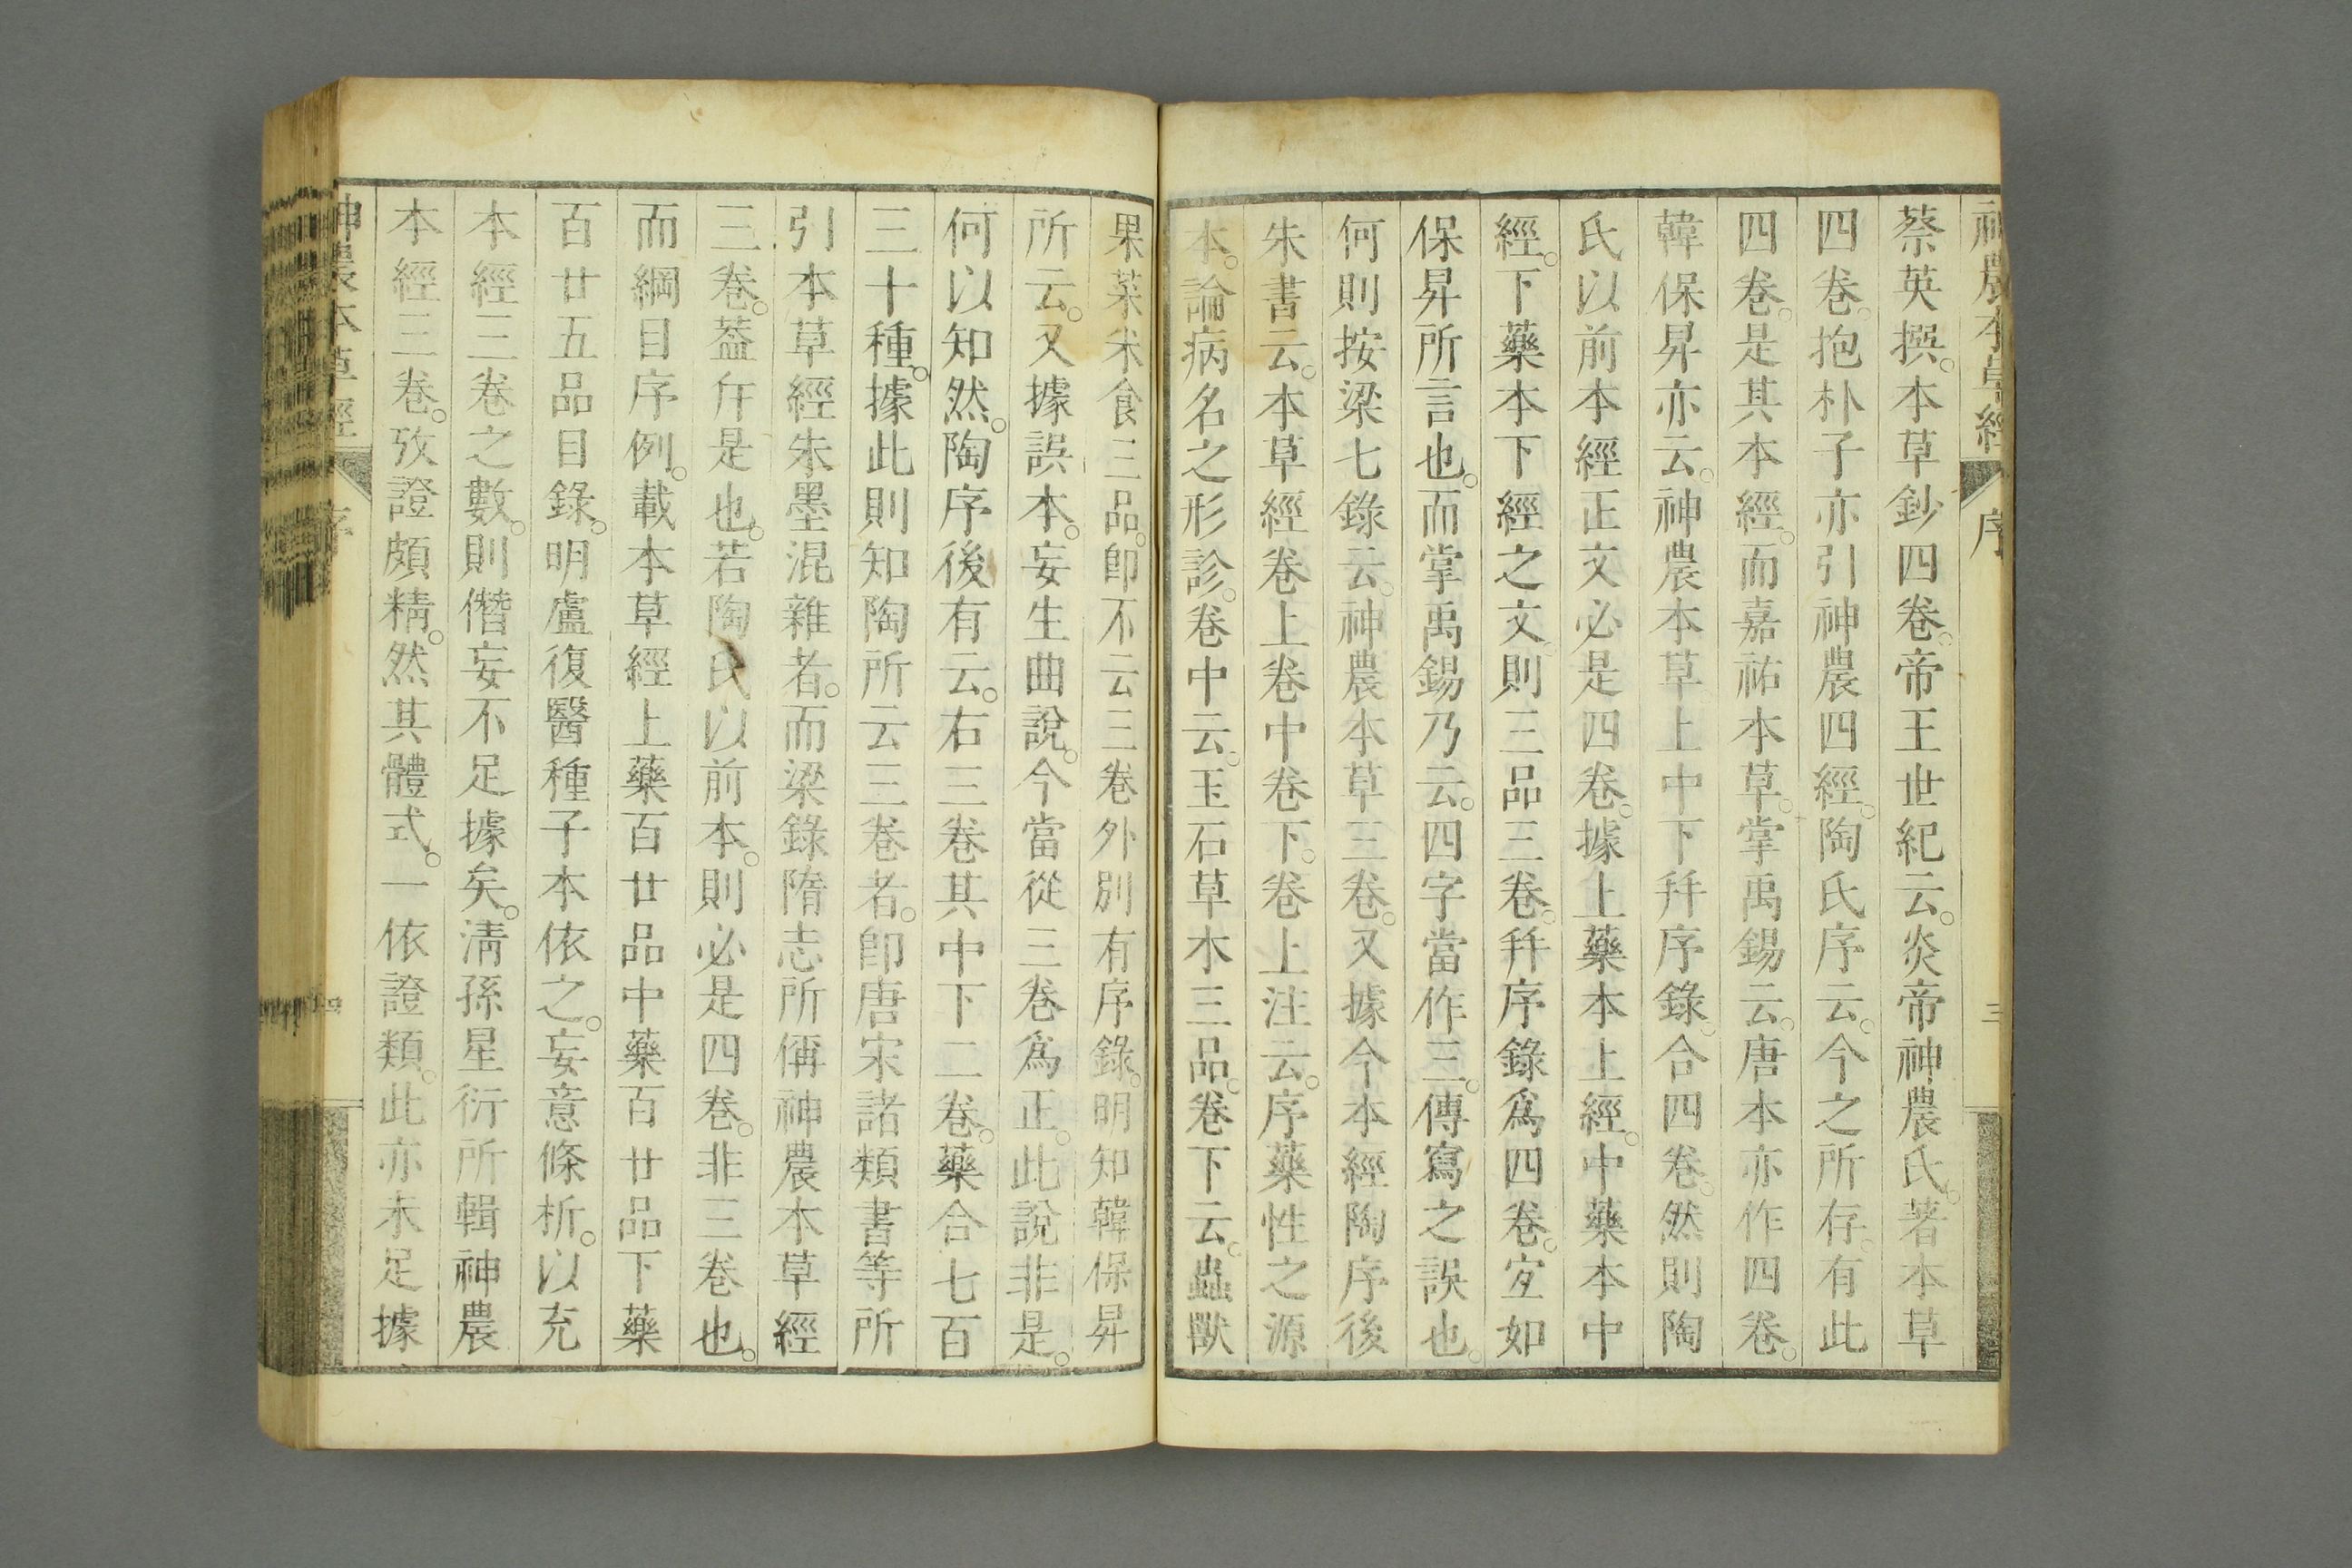 神農本草經 序 三
蔡英撰。本草鈔四卷。帝王世紀云。炎帝神農氏。著本草
四卷。抱朴子亦引神農四經。陶氏序云。今之所存。有此
四卷。是其本經。而嘉祐本草。掌禹錫云。唐本亦作四卷。
韓保昇亦云。神農本草上中下幷序錄。合四卷。然則陶
氏以前本經正文必是四卷。據上藥本上經。中藥本中
經。下藥本下經之文。則三品三卷。幷序錄爲四卷。宐如
保昇所言也。而掌禹錫乃云。四字當作三。傳寫之誤也。
何則按梁七錄云。神農本草三卷。又據今本經陶序後
朱書云。本草經卷上卷中卷下。卷上注云。序藥性之源
本。論病名之形診。卷中云。玉石草木三品。卷下云。蟲獸
果菜米食三品。卽不云三卷外別有序錄。明知韓保昇
所云。又據誤本。妄生曲說。今當從三卷爲正。此說非是。
何以知然。陶序後有云。右三卷其中下二卷。藥合七百
三十種。據此則知陶所云三卷者。卽唐宋諸類書等所
引本草經朱墨混雜者。而梁錄隋志所偁神農本草經
三卷。葢斥是也。若陶氏以前本。則必是四卷。非三卷也。
而綱目序例。載本草經上藥百廿品中藥百廿品下藥
百廿五品目錄。明盧復醫種子本依之。妄意條析。以充
本經三卷之數。則僭妄不足據矣。淸孫星衍所輯神農
本經三卷。攷證頗精。然其體式。一依證類。此亦未足據
神農本草經 序 四